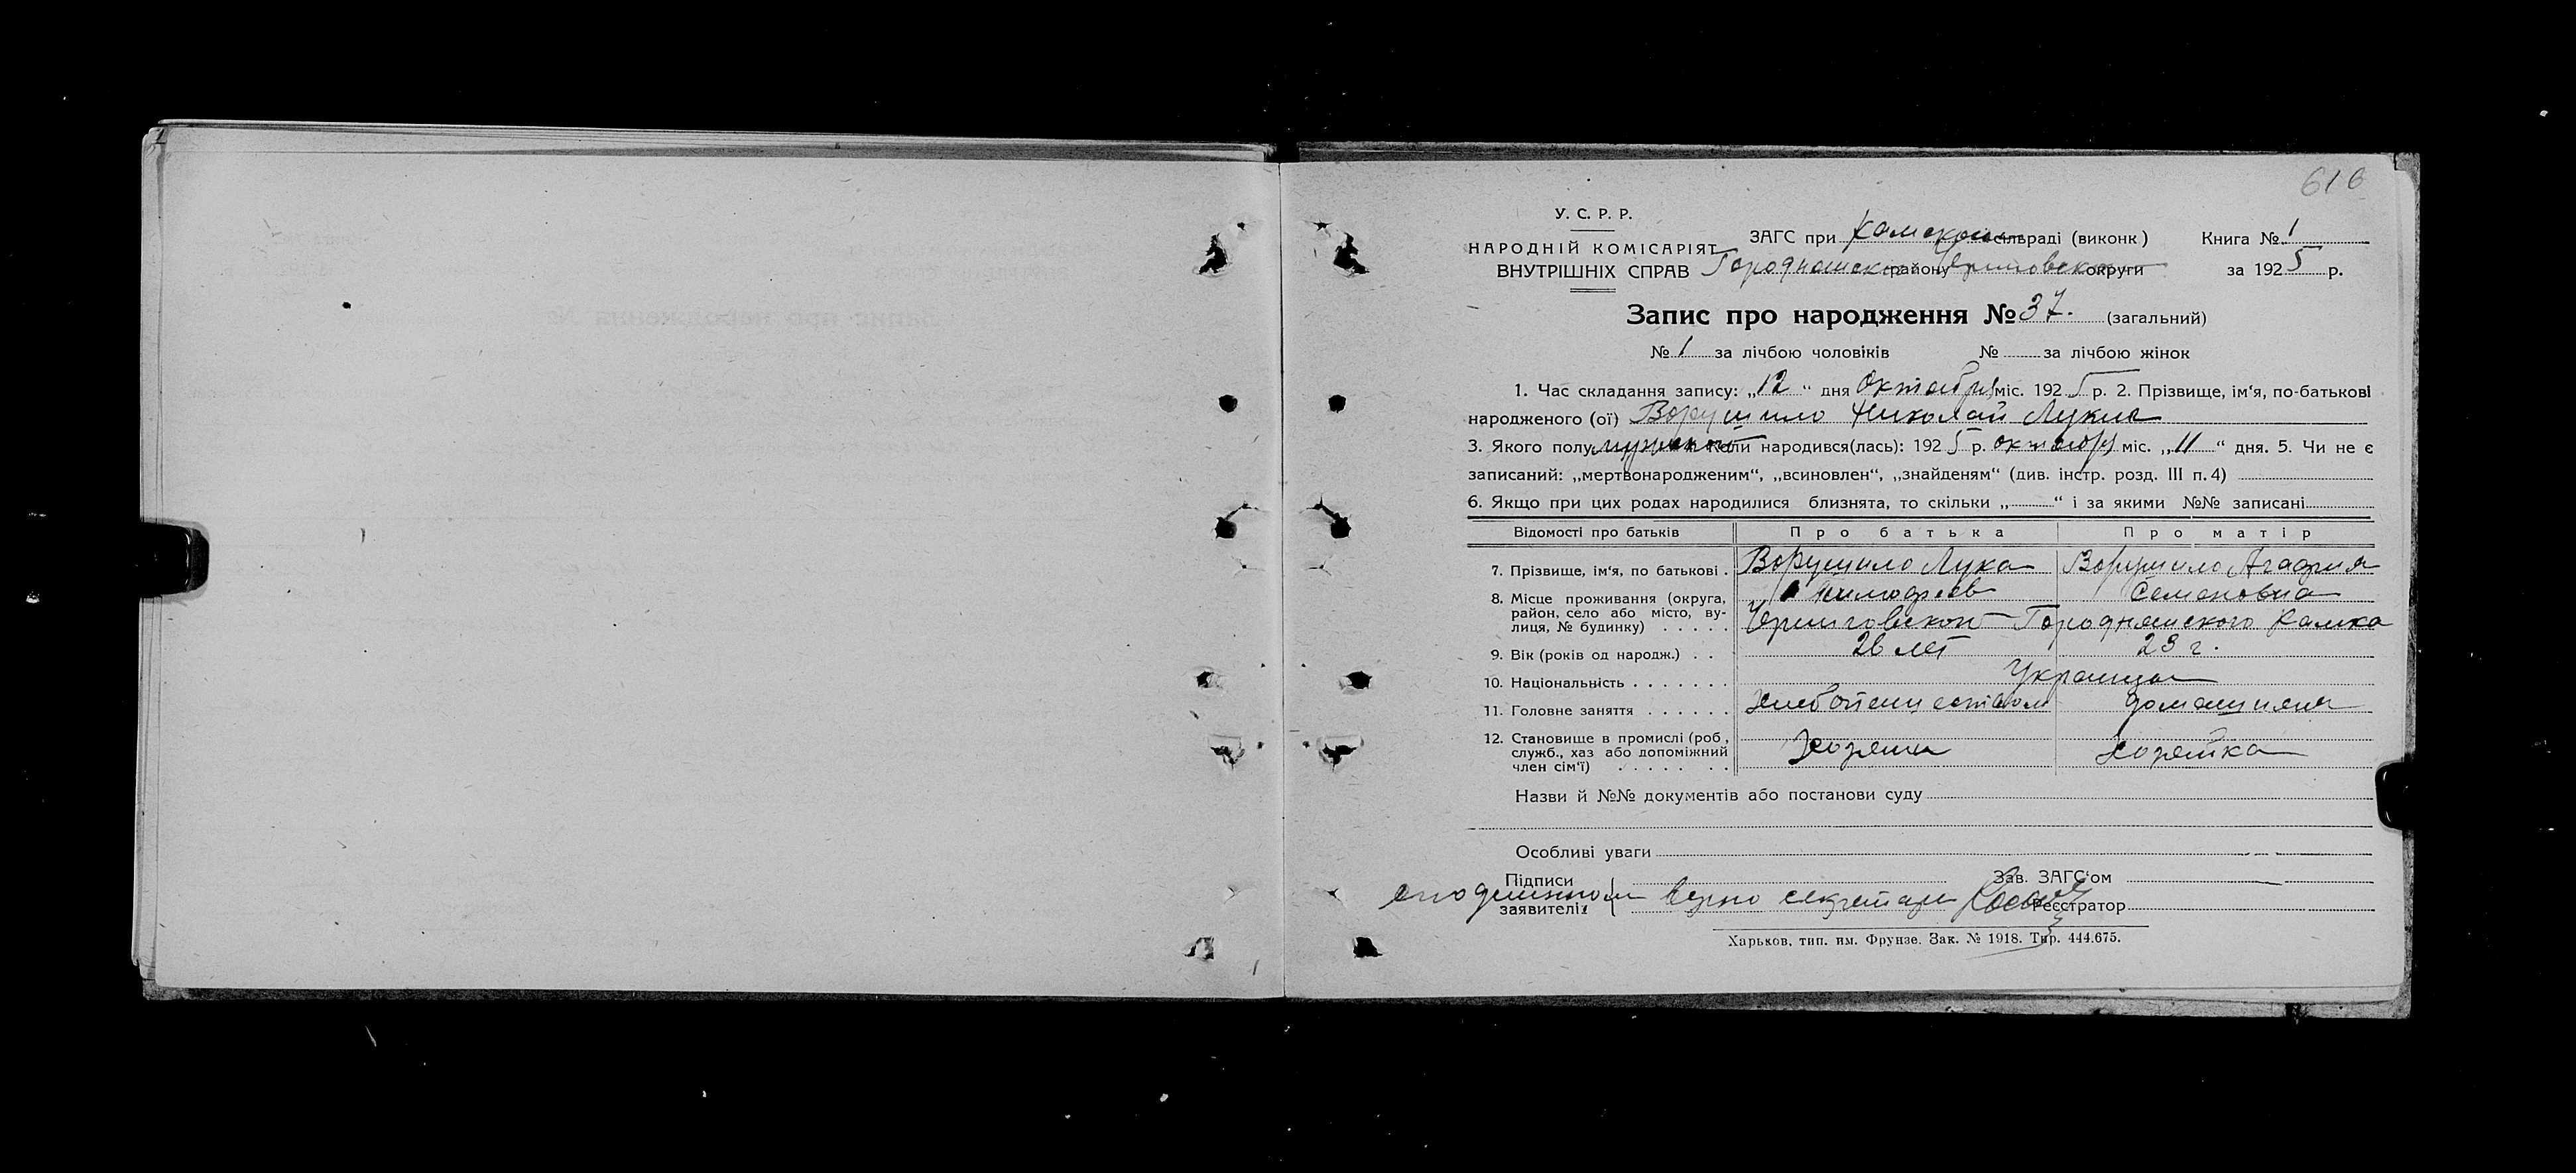 616
У. С. Р. Р.
НАРОДНІЙ КОМІСАРІЯТ
ВНУТРІШНІХ СПРАВ
ЗАГС при сільраді (виконк) Книга № 1
району округи за 1925 р.
Запис про народження № 37. (загальний)
№ 1 за лічбою чоловіків № за лічбою жінок
1. Час складання запису: „12“ дня Октября міс. 1925 р. 2. Прізвище, ім‘я, по-батькові
народженого (ої) Ворушило Николай Лукич
3. Якого полу мужской Коли народився(лась): 1925 р. октября міс. „11“ дня. 5. Чи не є
записаний: „мертвонародженим“, „всиновлен“, „знайденям“ (див. інстр. розд. III п. 4)
6. Якщо при цих родах народилися близнята, то скільки „ “ і за якими №№ записані
Відомості про батьків Про батька Про матір
7. Прізвище, ім‘я, по батькові . Ворушило Лука Ворушило Агафия
Тимофеев Семеновна
8. Місце проживання (округа,
район, село або місто, ву-
лиця, № будинку) . . . . . Черниговской Городнянского Камка
9. Вік (років од народж.) . . 26 лет 23 г.
10. Національність . . . . . . . Украинцы
11. Головне заняття . . . . . . хлебопашеством домашняя
12. Становище в промислі (роб,
служб., хаз або допоміжний
член сім‘ї) . . . . . . . Хозяин Хозяйка
Назви й №№ документів або постанови суду
Особливі уваги
Підписи Зав. ЗАГС‘ом
заявителів верно секретарь Реєстратор
Харьков, тип. им. Фрунзе. Зак. № 1918. Тир. 444.675.